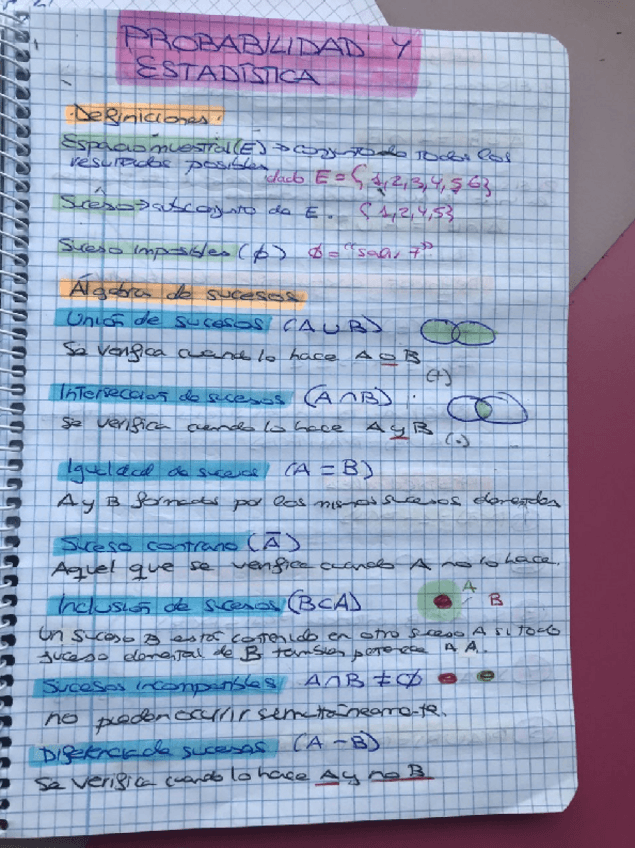 PROBABILIDAD Y
ESTADÍSTICA
·Definiciones·
Espacio muestral (E) → conjunto de todos los
resultados posibles
dado E = {1,2,3,4,5,6}
Suceso → subconjunto de E. {1,2,4,5}
Suceso imposible (ϕ) ϕ = "salir 7"
Álgebra de sucesos
Unión de sucesos (A ∪ B)
Se verifica cuando lo hace A o B
(+)
Intersección de sucesos (A ∩ B)
se verifica cuando lo hace A y B (·)
Igualdad de sucesos (A = B)
A y B formados por los mismos sucesos elementales
Suceso contrario (A̅)
Aquel que se verifica cuando A no lo hace.
Inclusión de sucesos (B⊂A) A B
Un suceso B está contenido en otro suceso A si todo
suceso elemental de B también pertenece A A.
Sucesos incompatibles A ∩ B ≠ ∅
no pueden ocurrir simultáneamente.
Diferencia de sucesos (A - B)
Se verifica cuando lo hace A y no B